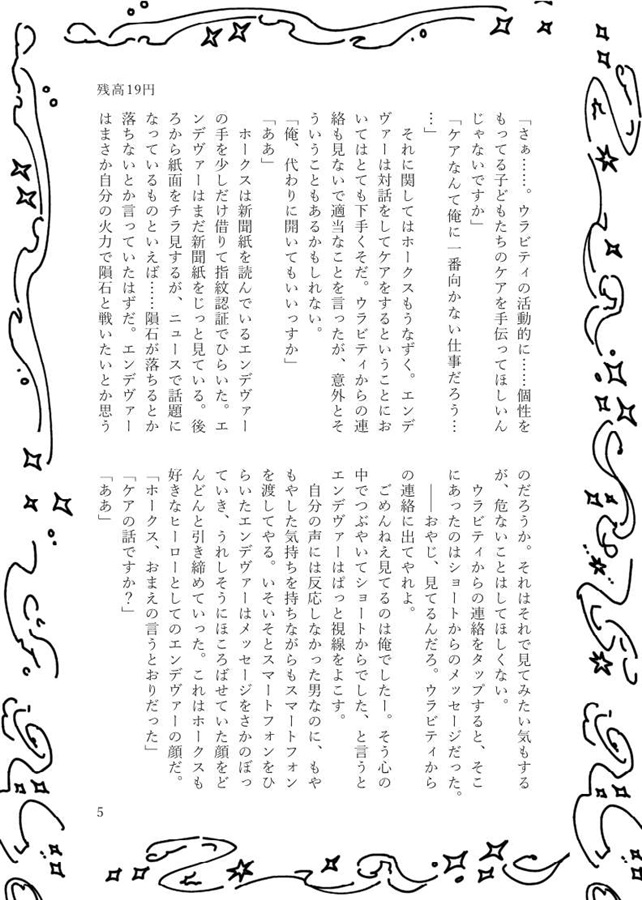 残高19円
「さぁ……。ウラビティの活動的に……個性を
もってる子どもたちのケアを手伝ってほしいん
じゃないですか」
「ケアなんて俺に一番向かない仕事だろう…
…」
それに関してはホークスもうなずく。エンデ
ヴァーは対話をしてケアをするということにお
いてはとても下手くそだ。ウラビティからの連
絡も見ないで適当なことを言ったが、意外とそ
ういうこともあるかもしれない。
「俺、代わりに開いてもいいっすか」
「ああ」
ホークスは新聞紙を読んでいるエンデヴァー
の手を少しだけ借りて指紋認証でひらいた。エ
ンデヴァーはまだ新聞紙をじっと見ている。後
ろから紙面をチラ見するが、ニュースで話題に
なっているものといえば……隕石が落ちるとか
落ちないとか言っていたはずだ。エンデヴァー
はまさか自分の火力で隕石と戦いたいとか思う
のだろうか。それはそれで見てみたい気もする
が、危ないことはしてほしくない。
ウラビティからの連絡をタップすると、そこ
にあったのはショートからのメッセージだった。
――おやじ、見てるんだろ。ウラビティから
の連絡に出てやれよ。
ごめんねえ見てるのは俺でしたー。そう心の
中でつぶやいてショートからでした、と言うと
エンデヴァーはぱっと視線をよこす。
自分の声には反応しなかった男なのに、もや
もやした気持ちを持ちながらもスマートフォン
を渡してやる。いそいそとスマートフォンをひ
らいたエンデヴァーはメッセージをさかのぼっ
ていき、うれしそうにほころばせていた顔をど
んどんと引き締めていった。これはホークスも
好きなヒーローとしてのエンデヴァーの顔だ。
「ホークス、おまえの言うとおりだった」
「ケアの話ですか？」
「ああ」
5